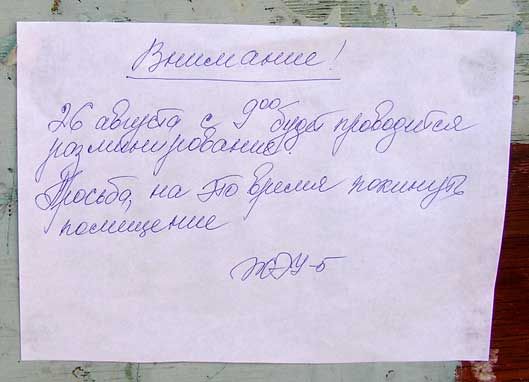 Внимание!
26 августа с 9⁰⁰ будет проводится
разминирование!
Просьба, на это время покинуть
помещение
ЖЭУ-5